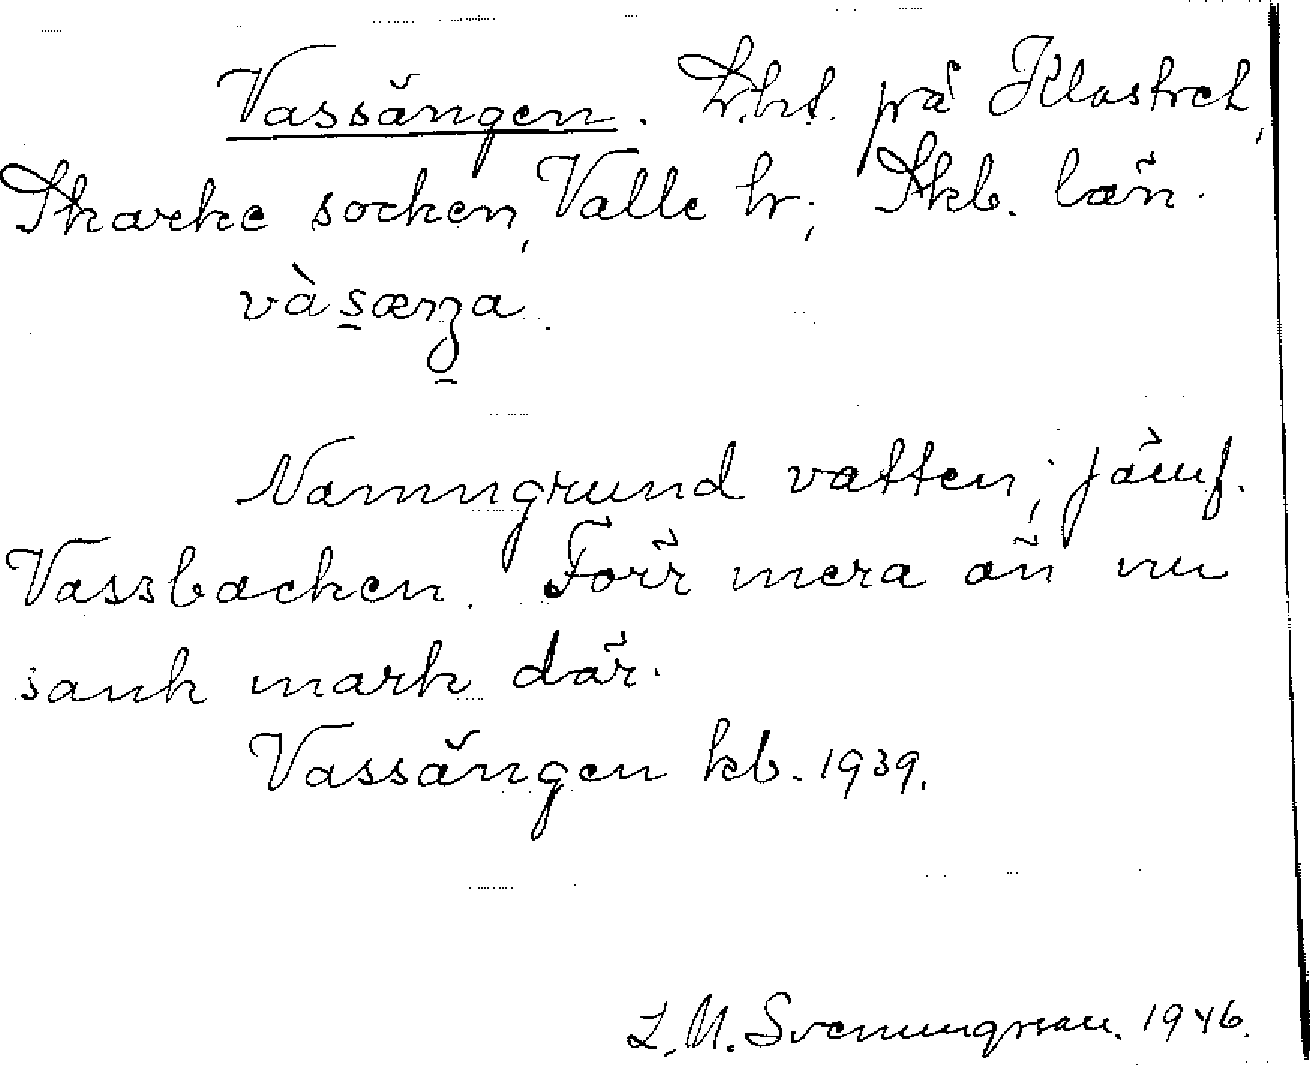 Vassängen. Lht. på Klostret,
Skarke socken, Valle hr; Skb. län.
vàs̱æŋa.
Namngrund vatten; jämf.
Vassbacken. Förr mera än nu
sank mark där.
Vassängen kb. 1939.
L. M. Svenungsson. 1946.